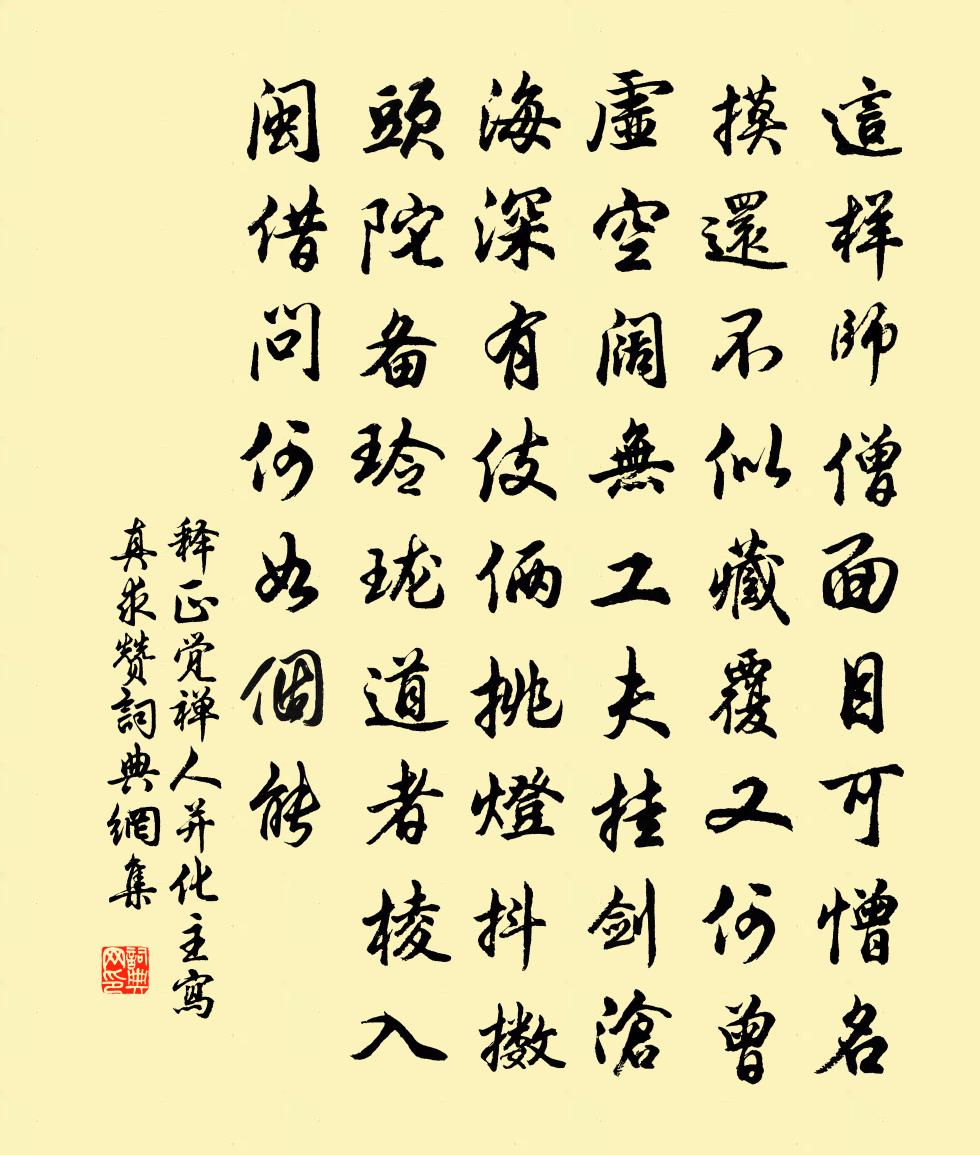 這样師僧面目可憎名
摸還不似藏覆又何曾
虛空阔無工夫挂劍滄
海深有伎倆挑燈抖擞
頭陀备玲珑道者棱入
闽借問何如個能
释正觉禅人并化主寫
真求赞詞典網集
詞典
网印